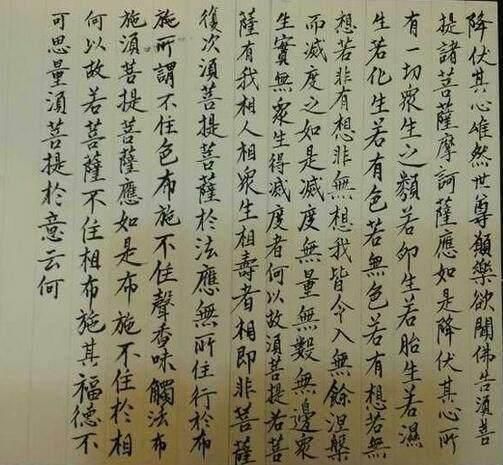 降伏其心雖然世尊願樂欲聞佛告須菩
提諸菩薩摩訶薩應如是降伏其心所
有一切眾生之類若卵生若胎生若濕
生若化生若有色若無色若有想若無
想若非有想非無想我皆令入無餘涅槃
而滅度之如是滅度無量無數無邊眾
生實無眾生得滅度者何以故須菩提若菩
薩有我相人相眾生相壽者相即非菩薩
復次須菩提菩薩於法應無所住行於布
施所謂不住色布施不住聲香味觸法布
施須菩提菩薩應如是布施不住於相
何以故若菩薩不住相布施其福德不
可思量須菩提於意云何